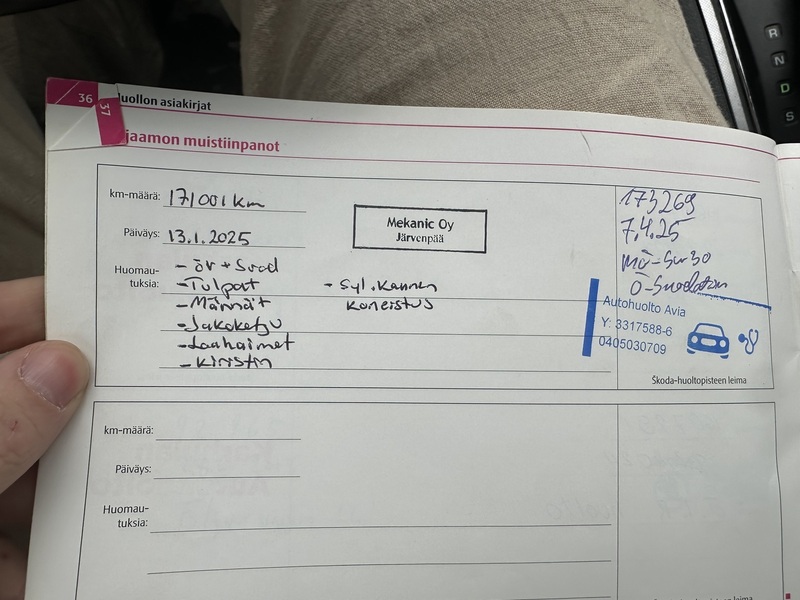 36
37
uollon asiakirjat
jaamon muistiinpanot
km-määrä: 171001 km
Päiväys: 13.1.2025
Huomau-
tuksia:
- öv + Suod
- Tulpat
- Männät
- Jakoketju
- Laahaimet
- kiristin
- Syl. kannen
koneistus
Mekanic Oy
Järvenpää
173269
7.4.25
mö-5w30
Ö-Suodatin
Autohuolto Avia
Y: 3317588-6
0405030709
Škoda-huoltopisteen leima
km-määrä:
Päiväys:
Huomau-
tuksia:
R
N
D
S